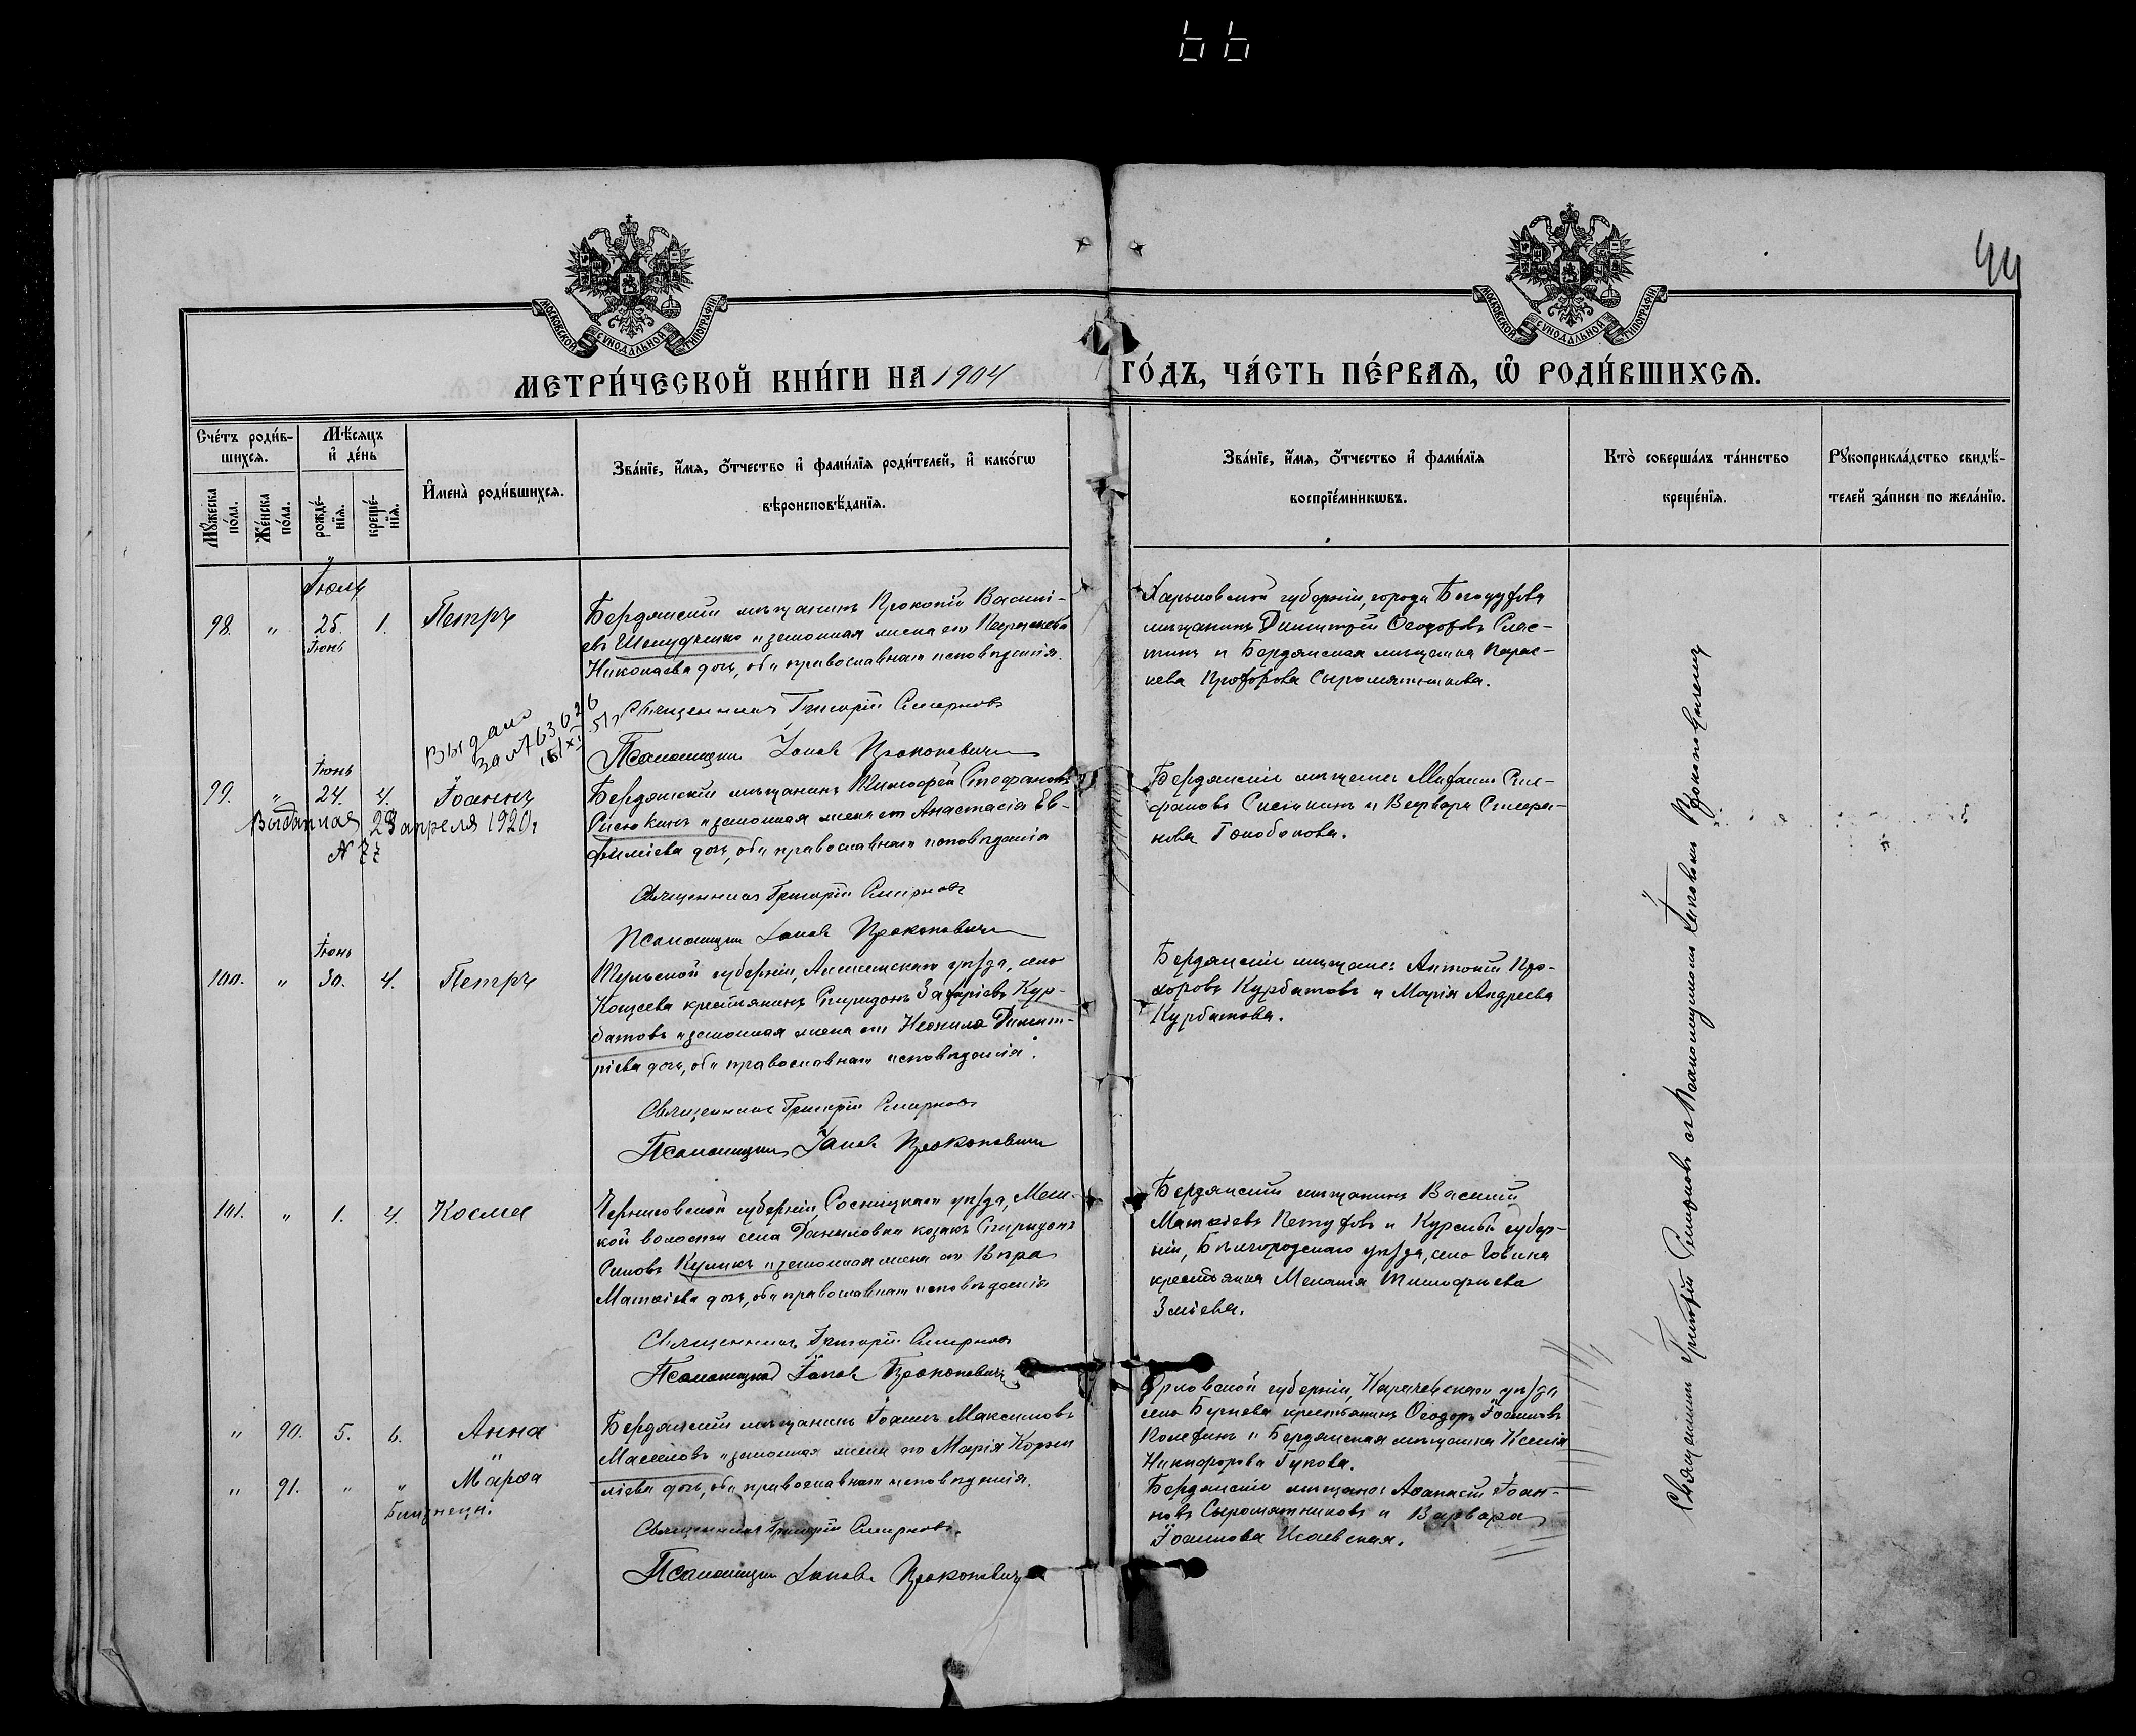 66
44
МОСКОВСКОЙ СѴНОДАЛЬНОЙ ТИПОГРАФІИ
МОСКОВСКОЙ СѴНОДАЛЬНОЙ ТИПОГРАФІИ
МЕТРИ́ЧЕСКОЙ КНИ́ГИ НА 1904 ГО́ДЪ, ЧА́СТЬ ПЕ́РВАѦ, Ѡ҆ РОДИ́ВШИХСѦ.
Сче́тъ роди́в-
шихсѧ.
Мꙋ́жеска по́ла.
Же́нска по́ла.
Мѣ́сѧцъ
и҆ де́нь
рожде́-
нїѧ.
креще́-
нїѧ.
И҆мена̀ роди́вшихсѧ.
Зва́нїе, и҆́мѧ, ѻ҆́тчество и҆ фами́лїѧ роди́телей, и҆ како́гѡ
вѣроисповѣ́данїѧ.
Зва́нїе, и҆́мѧ, ѻ҆́тчество и҆ фами́лїѧ
воспрїе́мникѡвъ.
Кто̀ соверша́лъ та́инство
креще́нїѧ.
Рꙋкоприкла́дство свидѣ́-
телей за́писи по жела́нїю.
Іюль
98. " 25. 1. Петръ
Іюнь
Бердянскій мѣщанинъ Прокопій Василі-
евъ и законная жена его Параскева
Николаева дочь, оба православнаго исповѣданія.
Священникъ Григорій Смирновъ
Псаломщикъ Іаковъ Прокоповичъ
Харьковской губерніи, города Богодухова
мѣщанинъ Димитрій Ѳеодоровъ Слас-
тинъ и Бердянская мѣщанка Парас-
кева Сыромятникова.
Выдано
за №
Іюнь
99. " 24. 4. Іоаннъ
Выданная 29 апреля 1920 г
N 77
Бердянскій мѣщанинъ Тимоѳей Стефановъ
и законная жена его Анастасія Ев-
фиміева дочь, оба православнаго исповѣданія
Священникъ Григорій Смирновъ
Псаломщикъ Іаковъ Прокоповичъ
Бердянскіе мѣщане: Михаилъ Сте-
фановъ и Варвара Стефа-
нова
Іюнь
100. " 30. 4. Петръ
Тульской губерніи, уѣзда, село
крестьянинъ Спиридонъ Захаріевъ Кур-
батовъ и законная жена его Неонила Димит-
ріева дочь, оба православнаго исповѣданія.
Священникъ Григорій Смирновъ
Псаломщикъ Іаковъ Прокоповичъ
Бердянскіе мѣщане: Антоній Про-
хоровъ Курбатовъ и Марія Андреева
Курбатова.
101. " 1. 4. Косма
Черниговской губерніи, Сосницкаго уѣзда, Мен-
кой волости села Даниловки козакъ Спиридонъ
Симовъ Куликъ и законная жена его Вѣра
Матвіева дочь, оба православнаго исповѣданія
Священникъ Григорій Смирновъ
Псаломщикъ Іаковъ Прокоповичъ
Бердянскій мѣщанинъ Василій
Матвіевъ Петуховъ и Курской губер-
ніи, Бѣлгородскаго уѣзда, село
крестьянка Меланія Тимоѳіева
Зміева.
" 90. 5. 6. Анна
" 91. " " Марѳа
Близнецы.
Бердянскій мѣщанинъ Іоаннъ Максимовъ
Масловъ и законная жена его Марія Корни-
ліева дочь, оба православнаго исповѣданія.
Священникъ Григорій Смирновъ.
Псаломщикъ Іаковъ Прокоповичъ
Орловской губерніи, Карачевскаго уѣзда
село крестьянинъ Ѳеодоръ Іоанновъ
и Бердянская мѣщанка Ксенія
Никифорова Гукова.
Бердянскіе мѣщане: Аѳанасій Іоан-
новъ Сыромятниковъ и Варвара
Іоаннова Исаевская.
Священникъ Григорій Смирновъ съ Псаломщикомъ Іаковомъ Прокоповичемъ